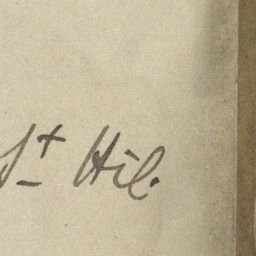 St Hil.